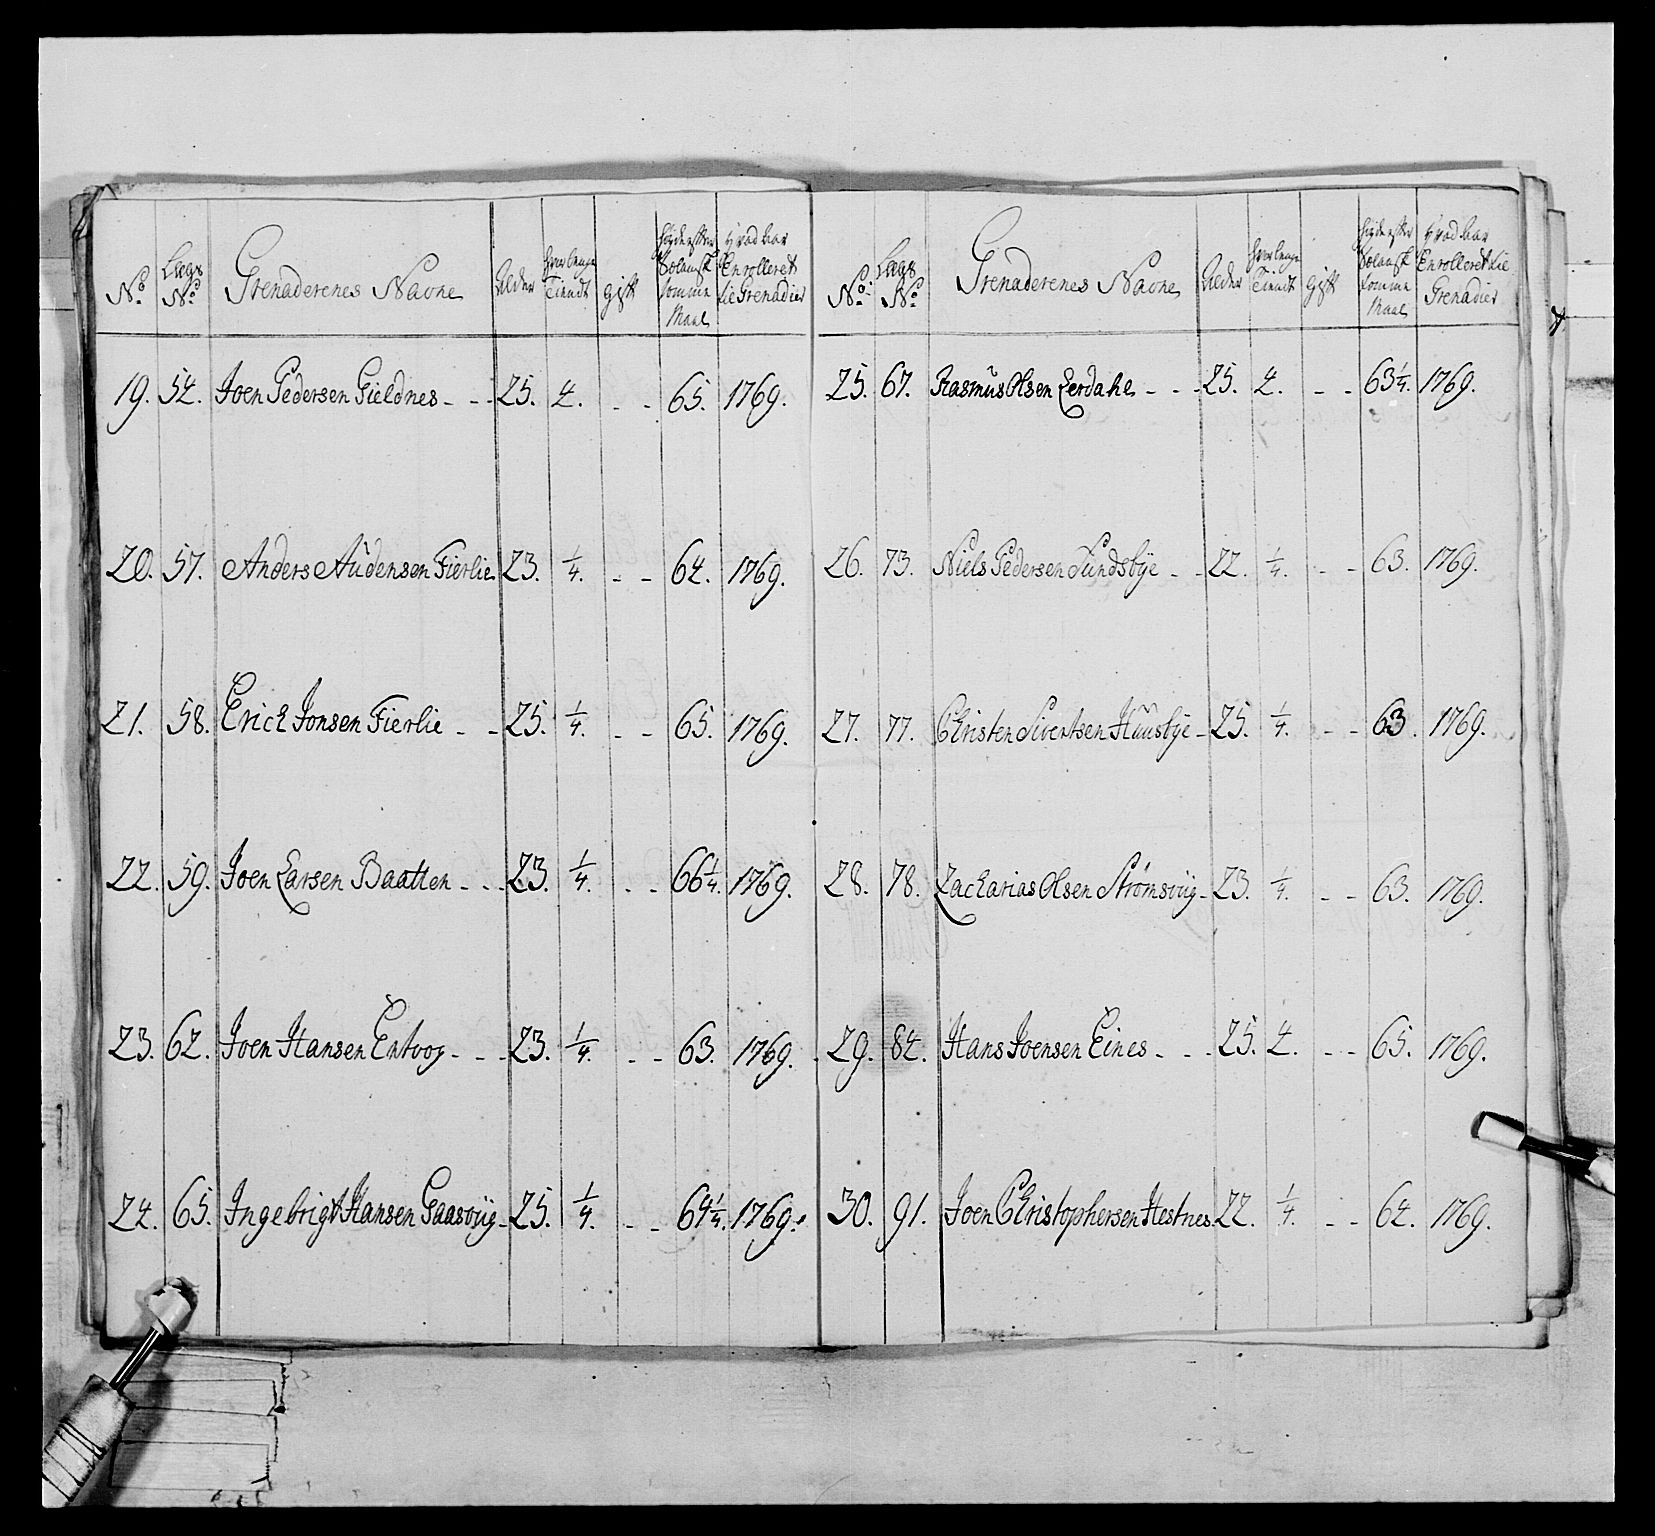 No. Lægs No. Grenaderenes Navne Alder hvor længe Tient gift Høyde efter Holansk Tomme Maal Hvad Aar Enrolleret til Grenadier
19. 54. Joen Pedersen Gieldnes - - - 25. 4. - - 65. 1769.
20. 57. Anders Audensen Fierlie 23. 1/4. - - 64. 1769.
21. 58. Erick Jonsen Fierlie - - 25. 1/4. - - 65. 1769.
22. 59. Joen Larsen Baatten - - - 23. 1/4. - - 66 1/4. 1769.
23. 62. Joen Hansen Entvog - - - 23. 1/4. - - 63. 1769.
24. 65. Ingebrigt Hansen Gaasvüg - 25. 1/4. - - 64 1/4. 1769.
No. Lægs No. Grenaderenes Navne Alder hvor længe Tient gift Høyde efter Holansk Tomme Maal Hvad Aar Enrolleret til Grenadier
25. 67. Rasmus Olsen Lerdahl - - - 25. 4. - - 63 1/4. 1769.
26. 73. Niels Pedersen Sundsbÿe - - 22. 1/4. - - 63. 1769.
27. 77. Christen Sivertsen Huusbÿe - 25. 1/4. - - 63. 1769.
28. 78. Zacharias Olsen Strømsvüg - 23. 1/4. - - 63. 1769.
29. 84. Hans Joensen Eines - - - 25. 4. - - 65. 1769.
30. 91. Joen Christophersen Hestnes 22. 1/4. - - 64. 1769.